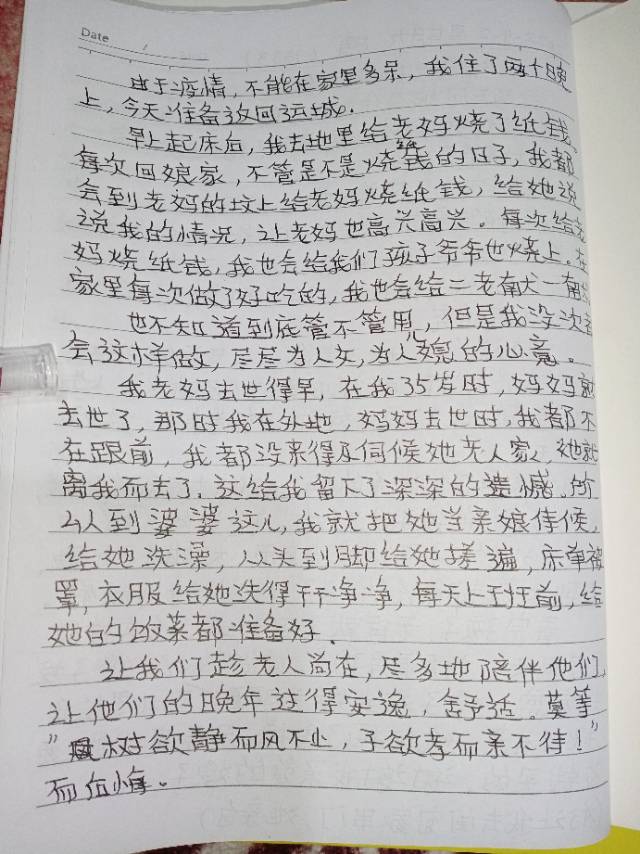 Date
由于疫情，不能在家里多呆，我住了两个晚
上，今天准备返回运城。
早上起床后，我去地里给老妈烧了纸钱。
每次回娘家，不管是不是烧纸钱的日子，我都
会到老妈的坟上给老妈烧纸钱，给她说
说我的情况，让老妈也高兴高兴。每次给老
妈烧纸钱，我也会给我们孩子爷爷也烧上。在
家里每次做了好吃的，我也会给二老献一献
也不知道到底管不管用，但是我每次都
会这样做，尽尽为人女，为人媳的心意。
我老妈去世得早，在我35岁时，妈妈就
去世了，那时我在外地，妈妈去世时，我都不
在跟前，我都没来得及伺候她老人家，她就
离我而去了。这给我留下了深深的遗憾，所
以从到婆婆这儿，我就把她当亲娘侍候，
给她洗澡，从头到脚给她搓遍，床单被
罩，衣服给她洗得干干净净，每天上班前，给
她的饭菜都准备好。
让我们趁老人尚在，尽多地陪伴他们，
让他们的晚年过得安逸，舒适。莫等
"树欲静而风不止，子欲孝而亲不待！"
而后悔。